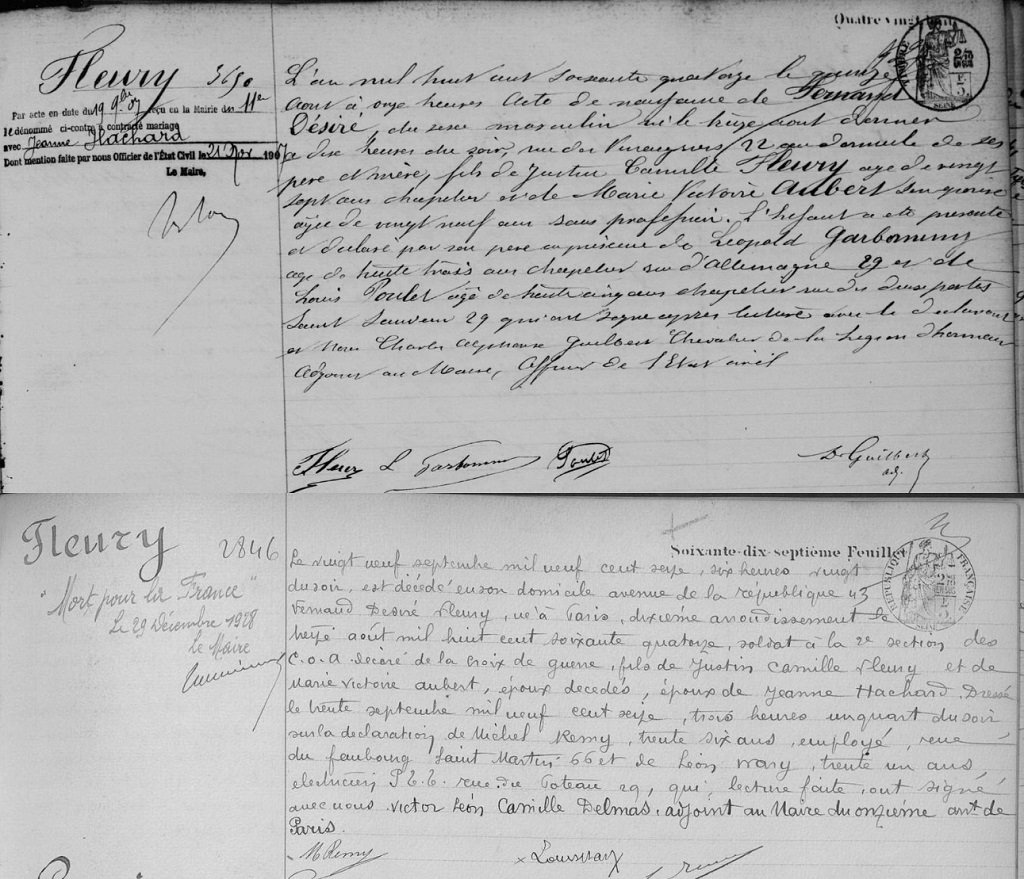 Quatre vingt
Fleury 3650
Par acte en date du 19 9bre 07 reçu en la Mairie du 11e
le dénommé ci-contre a contracté mariage
avec Jeanne Hachard
Dont mention faite par nous Officier de l'État Civil le 21 Nov 1907
Le Maire,
L'an mil huit cent soixante quatorze le quinze
aout à onze heures acte de naissance de Fernand
Désiré, du sexe masculin né le treize aout dernier
à dix heures du soir, rue des Vinaigriers 22 au domicile de ses
père et mère, fils de Justin Camille Fleury age de vingt
sept ans chapelier et de Marie Victoire Aubert son épouse
agée de vingt neuf ans sans profession. L'enfant a été présenté
et déclaré par son père en présence de Léopold
age de trente trois ans chapelier rue d'Allemagne 29 et de
Louis Poulet agé de trente cinq ans chapelier rue des deux portes
Saint Sauveur 29 qui ont signé après lecture avec le déclarant
et Nous Charles Alphonse Guilbert Chevalier de la Légion d'honneur
Adjoint au Maire, officier de l'Etat civil
Fleury L Poulet D. Guilbert
adj.
Fleury 2846
"Mort pour la France"
Le 29 Décembre 1928
le Maire
Soixante-dix-septième Feuillet
RÉPUBLIQUE FRANÇAISE
Le vingt neuf septembre mil neuf cent seize, six heures vingt
du soir, est décédé en son domicile avenue de la république 43
Fernand Desiré Fleury, né à Paris, dixième arrondissement le
treize août mil huit cent soixante quatorze, soldat à la 2e section des
C.O.A. décoré de la croix de guerre, fils de Justin Camille Fleury et de
Marie Victoire Aubert, époux decedés, époux de Jeanne Hachard. Dressé
le trente septembre mil neuf cent seize, trois heures un quart du soir
sur la déclaration de Michel Remy, trente six ans, employé, rue
du faubourg Saint Martin 66 et de Léon Wary, trente un ans,
electricien P.T.T. rue du Poteau 29, qui, lecture faite, ont signé
avec nous Victor Léon Camille Delmas, adjoint au Maire du onzième arrt de
Paris.
M Remy